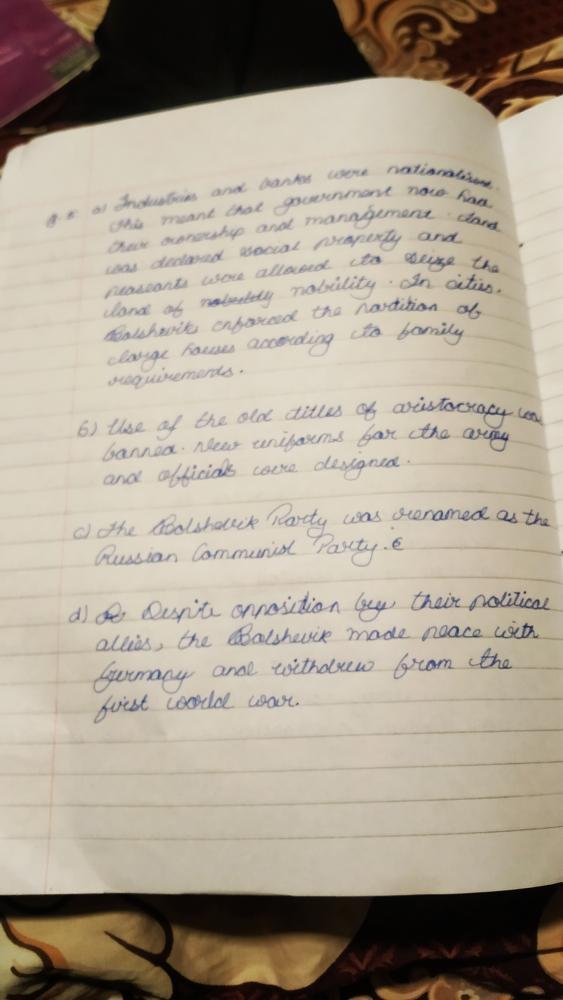 a) Industries and banks were nationalised.
This meant that government now had
their ownership and management. Land
was declared social property and
peaseants were allowed to seize the
land of nobility. In cities,
Bolshevik enforced the partition of
large houses according to family
requirements.
b) Use of the old titles of aristocracy was
banned. New uniforms for the army
and officials were designed.
c) The Bolshevik Party was renamed as the
Russian Communist Party.
d) Despite opposition by their political
allies, the Bolshevik made peace with
Germany and withdrew from the
first world war.